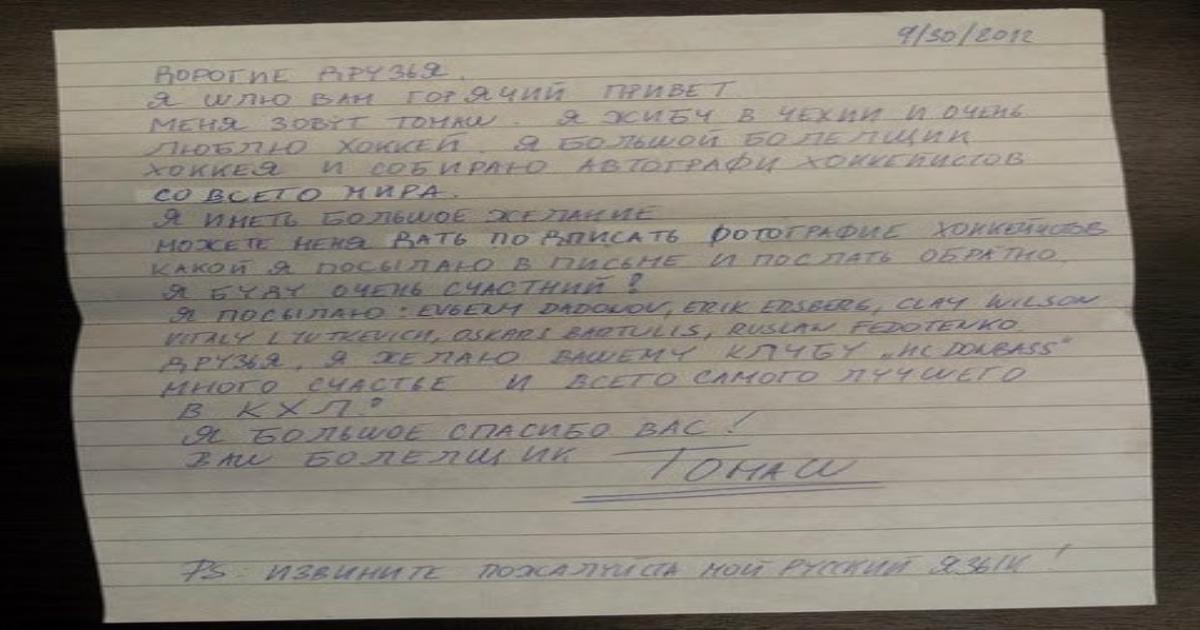 9/30/2012
ДОРОГИЕ ДРУЗЬЯ.
Я ШЛЮ ВАМ ГОРЯЧИЙ ПРИВЕТ
МЕНЯ ЗОВУТ ТОМАШ. Я ЖИВУ В ЧЕХИИ И ОЧЕНЬ
ЛЮБЛЮ ХОККЕЙ. Я БОЛЬШОЙ БОЛЕЛЩИК
ХОККЕЯ И СОБИРАЮ АВТОГРАФИ ХОККЕИИСТОВ
СО ВСЕТО МИРА.
Я ИМЕТЬ БОЛЬШОЕ ЖЕЛАНИЕ
МОЖЕТЕ МЕНЯ ДАТЬ ПОДПИСАТЬ ФОТОГРАФИЕ ХОККЕЙИСТОВ
КАКОЙ Я ПОСЫЛАЮ В ПИСЬМЕ И ПОСЛАТЬ ОБРАТНО.
Я БУДУ ОЧЕНЬ СЧАСТНИЙ!
Я ПОСЫЛАЮ: EVGENY DADONOV, ERIK ERSBERG, CLAY WILSON
VITALY LYUTKEVICH, OSKARS BARTULIS, RUSLAN FEDOTENKO
ДРУЗЬЯ, Я ЖЕЛАЮ ВАШЕМУ КЛУБУ „HC DONBASS"
МНОГО СЧАСТЬЕ И ВСЕТО САМОГО ЛУЧШЕГО
В КХЛ!
Я БОЛЬШОЕ СПАСИБО ВАС!
ВАШ БОЛЕЛЩИК ТОМАШ
PS: ИЗВИНИТЕ ПОЖАЛУЙСТА МОЙ РУССКИЙ ЯЗЫК!